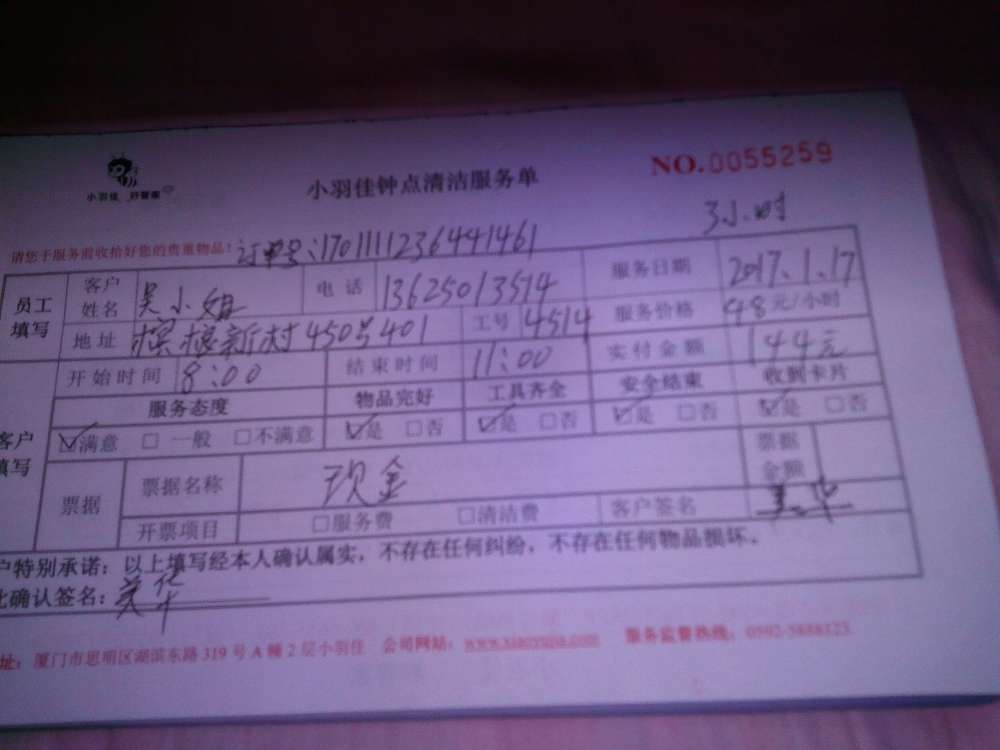 小羽佳 好管家
小羽佳钟点清洁服务单
NO.0055259
3小时
请您于服务前收拾好您的贵重物品! 订单号:1701111236441461
员工填写 客户姓名 吴小姐 电话 13625013514 服务日期 2017.1.17
地址 槟榔新村450号401 工号 4514 服务价格 48元/小时
开始时间 8:00 结束时间 11:00 实付金额 144元
客户填写 服务态度 物品完好 工具齐全 安全结束 收到卡片
☑满意 □一般 □不满意 ☑是 □否 ☑是 □否 ☑是 □否 ☑是 □否
票据 票据名称 现金 票据金额
开票项目 □服务费 □清洁费 客户签名
户特别承诺:以上填写经本人确认属实,不存在任何纠纷,不存在任何物品损坏。
此确认签名:
址:厦门市思明区湖滨东路319号A幢2层小羽佳 公司网站: 服务监督热线: